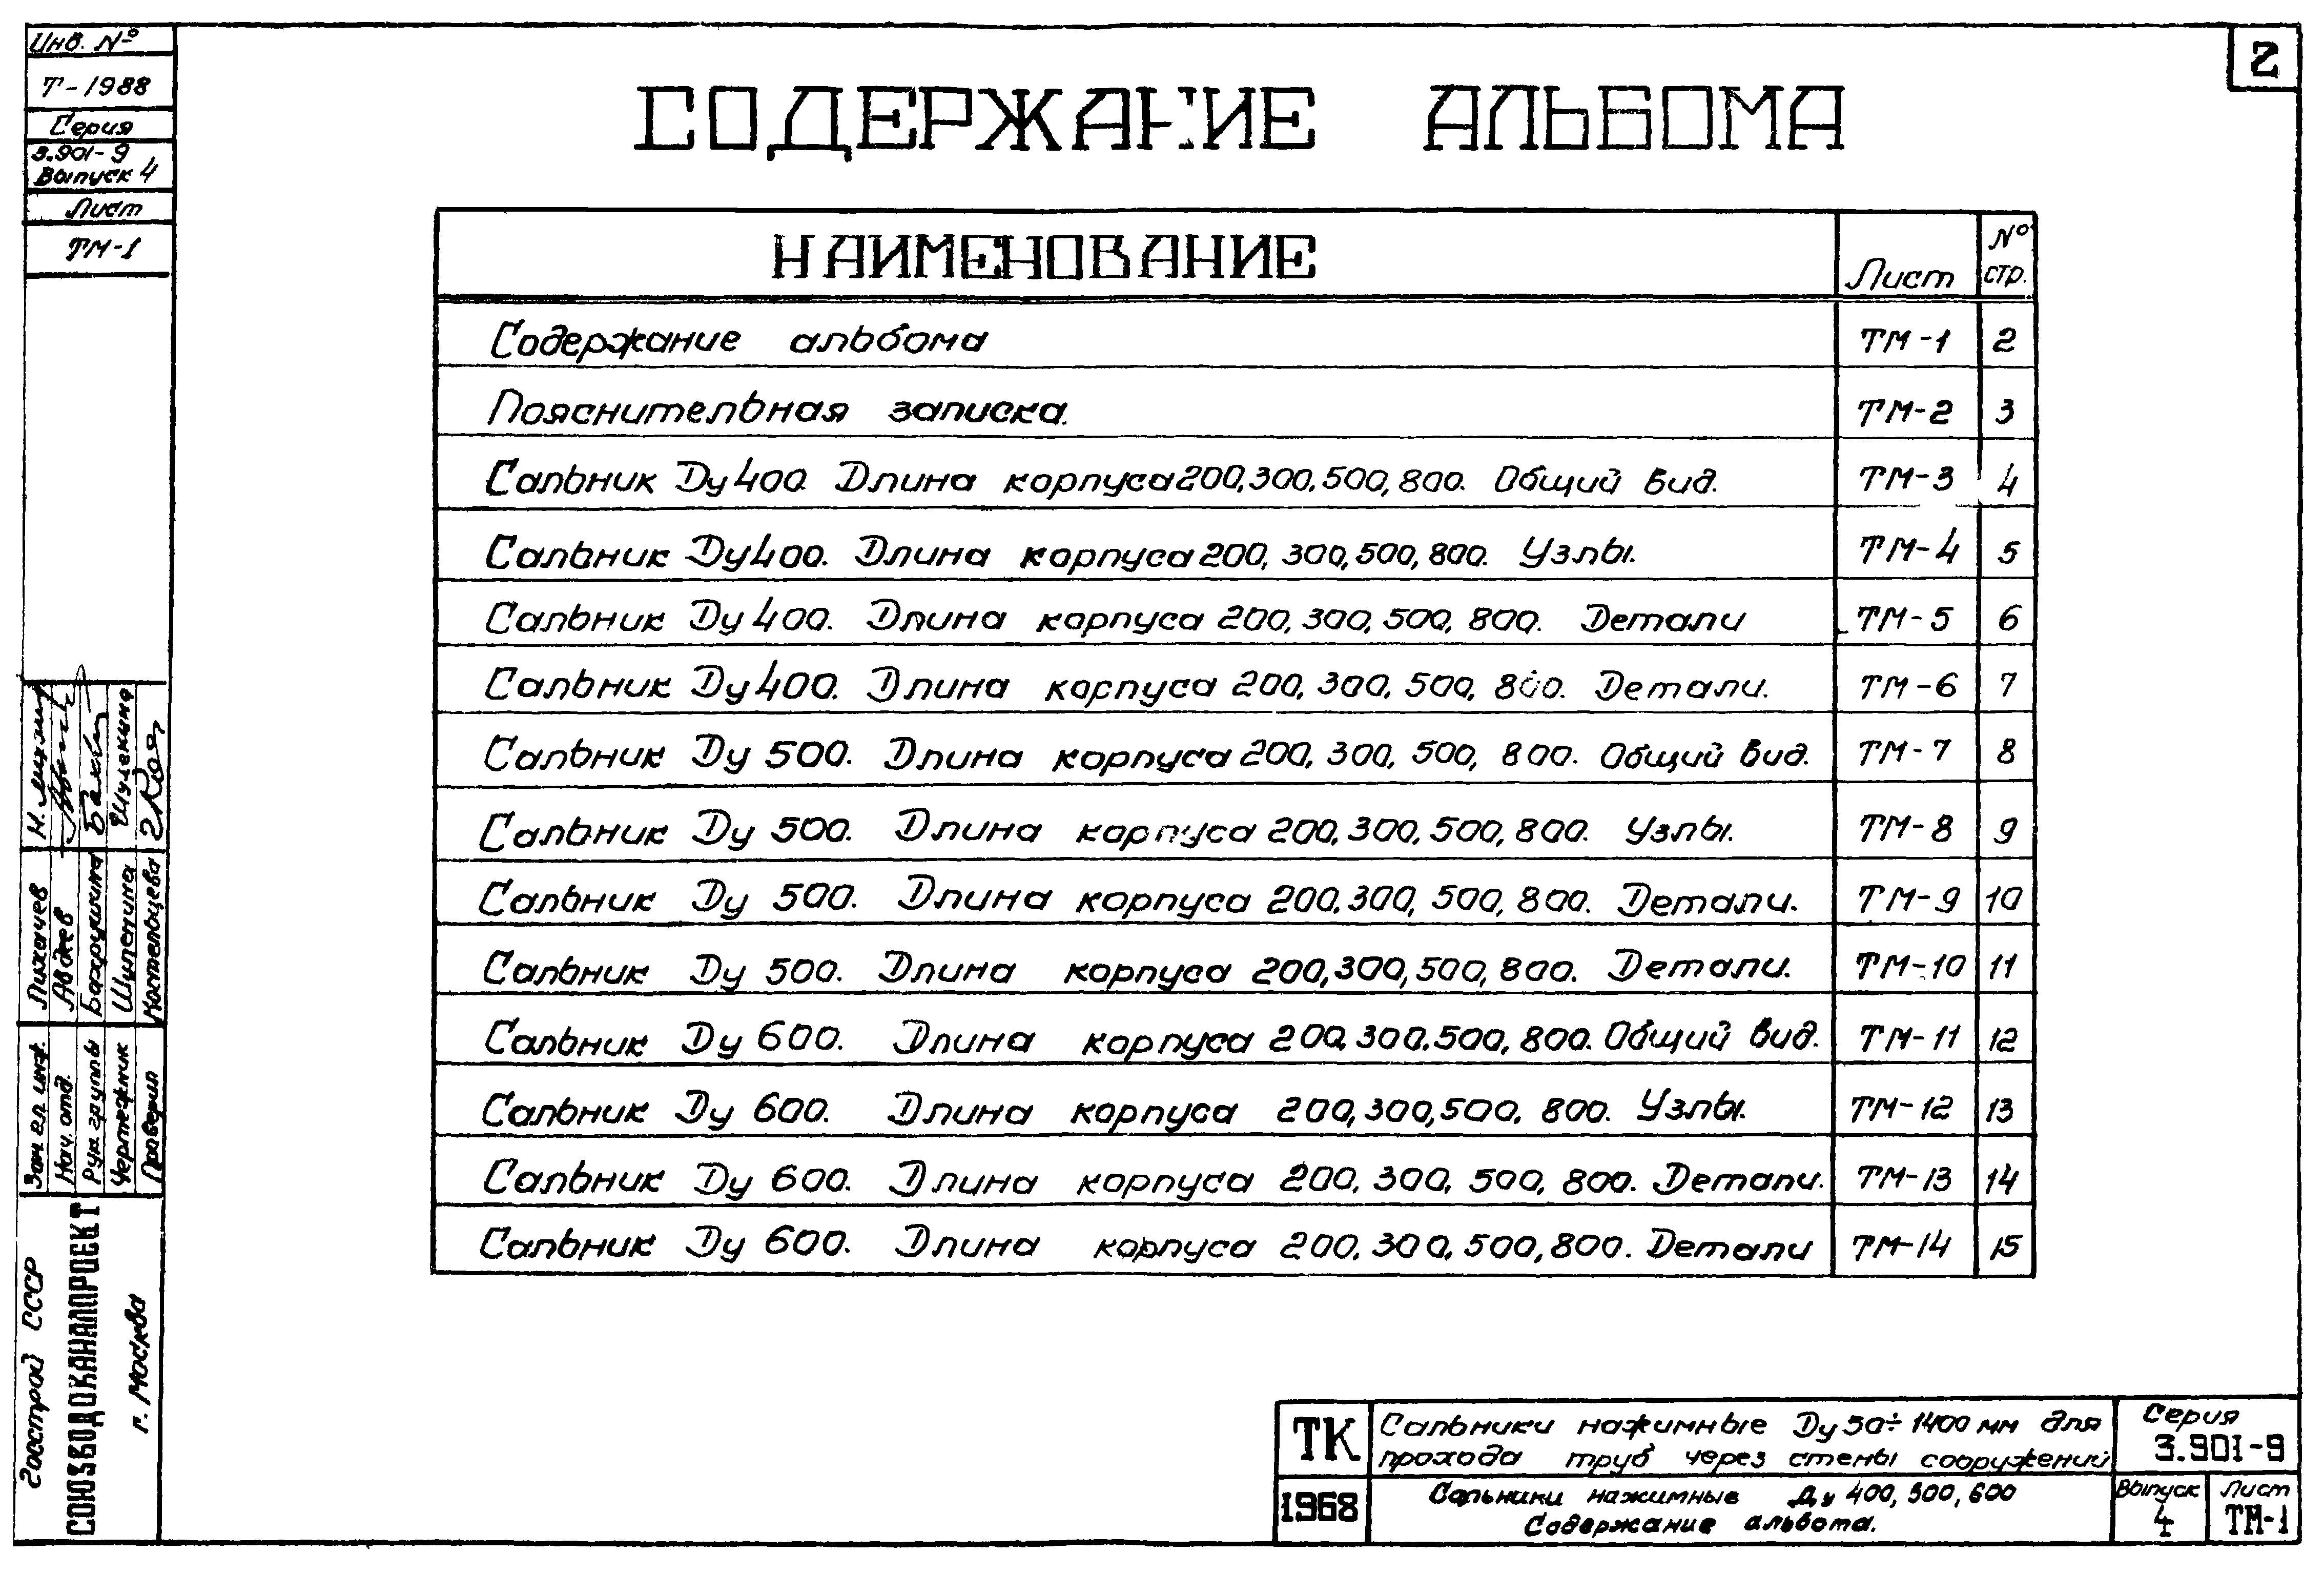 Инв. №
Т-1988
Серия
3.901-9
Выпуск 4
Лист
ТМ-1
2
СОДЕРЖАНИЕ АЛЬБОМА
НАИМЕНОВАНИЕ Лист № стр.
Содержание альбома ТМ-1 2
Пояснительная записка. ТМ-2 3
Сальник Ду 400. Длина корпуса 200, 300, 500, 800. Общий вид. ТМ-3 4
Сальник Ду 400. Длина корпуса 200, 300, 500, 800. Узлы. ТМ-4 5
Сальник Ду 400. Длина корпуса 200, 300, 500, 800. Детали ТМ-5 6
Сальник Ду 400. Длина корпуса 200, 300, 500, 800. Детали. ТМ-6 7
Сальник Ду 500. Длина корпуса 200, 300, 500, 800. Общий вид. ТМ-7 8
Сальник Ду 500. Длина корпуса 200, 300, 500, 800. Узлы. ТМ-8 9
Сальник Ду 500. Длина корпуса 200, 300, 500, 800. Детали. ТМ-9 10
Сальник Ду 500. Длина корпуса 200, 300, 500, 800. Детали. ТМ-10 11
Сальник Ду 600. Длина корпуса 200, 300, 500, 800. Общий вид. ТМ-11 12
Сальник Ду 600. Длина корпуса 200, 300, 500, 800. Узлы. ТМ-12 13
Сальник Ду 600. Длина корпуса 200, 300, 500, 800. Детали. ТМ-13 14
Сальник Ду 600. Длина корпуса 200, 300, 500, 800. Детали ТМ-14 15
Зам. гл. инж. Лихачев
Нач. отд. Авдеев
Рук. группы Бахрушина
Чертежник Шулепина
Проверил Костельцева
Госстрой СССР
СОЮЗВОДОКАНАЛПРОЕКТ
г. Москва
ТК
1968
Сальники нажимные Ду 50÷1400 мм для
прохода труб через стены сооружений
Серия
3.901-9
Сальники нажимные Ду 400, 500, 600
Содержание альбома.
Выпуск
4
Лист
ТМ-1